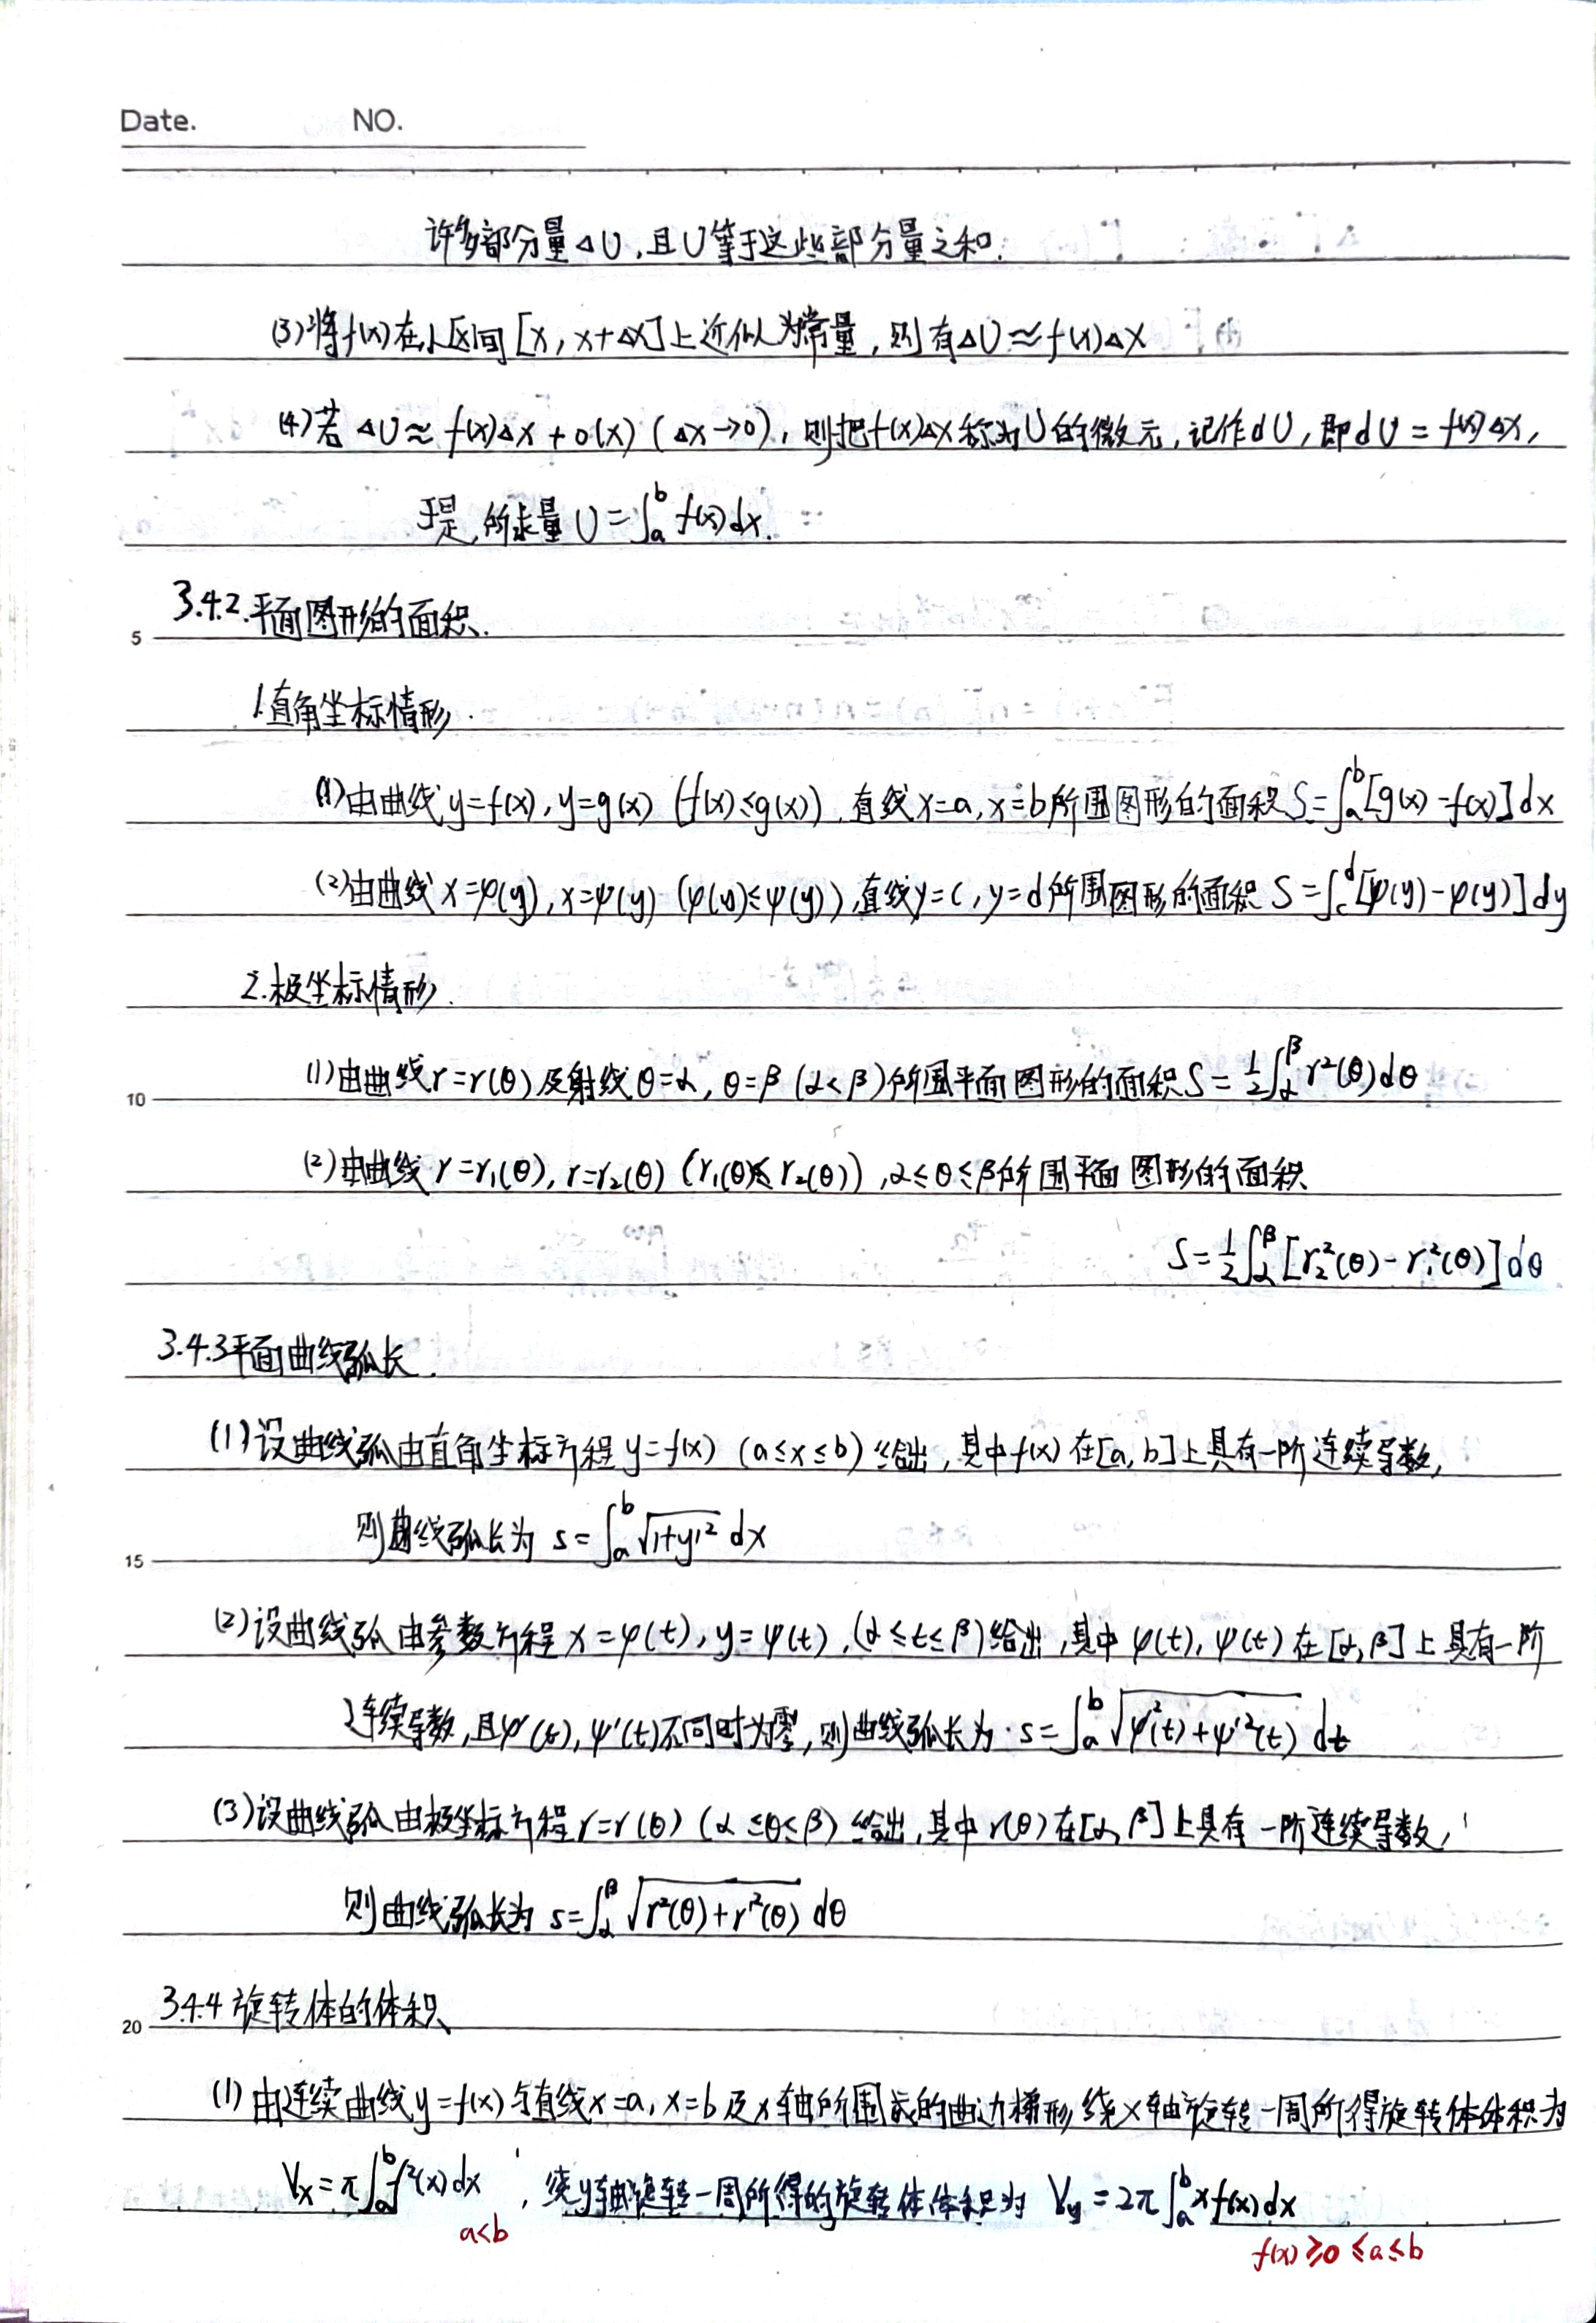 Date. NO.
许多部分量ΔU,且U等于这些部分量之和.
(3)将f(x)在小区间[x,x+Δx]上近似为常量,则有ΔU≈f(x)Δx
(4)若ΔU≈f(x)Δx+o(x) (Δx→0),则把f(x)Δx称为U的微元,记作dU,即dU=f(x)Δx,
于是,所求量U=∫_a^b f(x)dx.
3.4.2.平面图形的面积.
5
1.直角坐标情形.
(1)由曲线y=f(x),y=g(x) (f(x)≤g(x)),直线x=a,x=b所围图形的面积S=∫_a^b[g(x)-f(x)]dx
(2)由曲线x=φ(y),x=ψ(y) (φ(y)≤ψ(y)),直线y=c,y=d所围图形的面积S=∫_c^d[ψ(y)-φ(y)]dy
2.极坐标情形.
(1)由曲线r=r(θ)及射线θ=α,θ=β(α<β)所围平面图形的面积S=½∫_α^β r²(θ)dθ
10
(2)由曲线r=r₁(θ),r=r₂(θ) (r₁(θ)≤r₂(θ)),α≤θ≤β所围平面图形的面积
S=½∫_α^β[r₂²(θ)-r₁²(θ)]dθ
3.4.3平面曲线弧长.
(1)设曲线弧由直角坐标方程y=f(x) (a≤x≤b)给出,其中f(x)在[a,b]上具有一阶连续导数,
则曲线弧长为 s=∫_a^b √(1+y'²) dx
15
(2)设曲线弧由参数方程x=φ(t),y=ψ(t),(α≤t≤β)给出,其中φ(t),ψ(t)在[α,β]上具有一阶
连续导数,且φ'(t),ψ'(t)不同时为零,则曲线弧长为 s=∫_a^b √(φ'²(t)+ψ'²(t)) dt
(3)设曲线弧由极坐标方程r=r(θ) (α≤θ≤β)给出,其中r(θ)在[α,β]上具有一阶连续导数,
则曲线弧长为 s=∫_α^β √(r²(θ)+r'²(θ)) dθ
3.4.4旋转体的体积
20
(1)由连续曲线y=f(x)与直线x=a,x=b及x轴所围成的曲边梯形绕x轴旋转一周所得旋转体体积为
Vx=π∫_a^b f²(x)dx,绕y轴旋转一周所得的旋转体体积为 Vy=2π∫_a^b xf(x)dx
a<b f(x)≥0 ≤a≤b